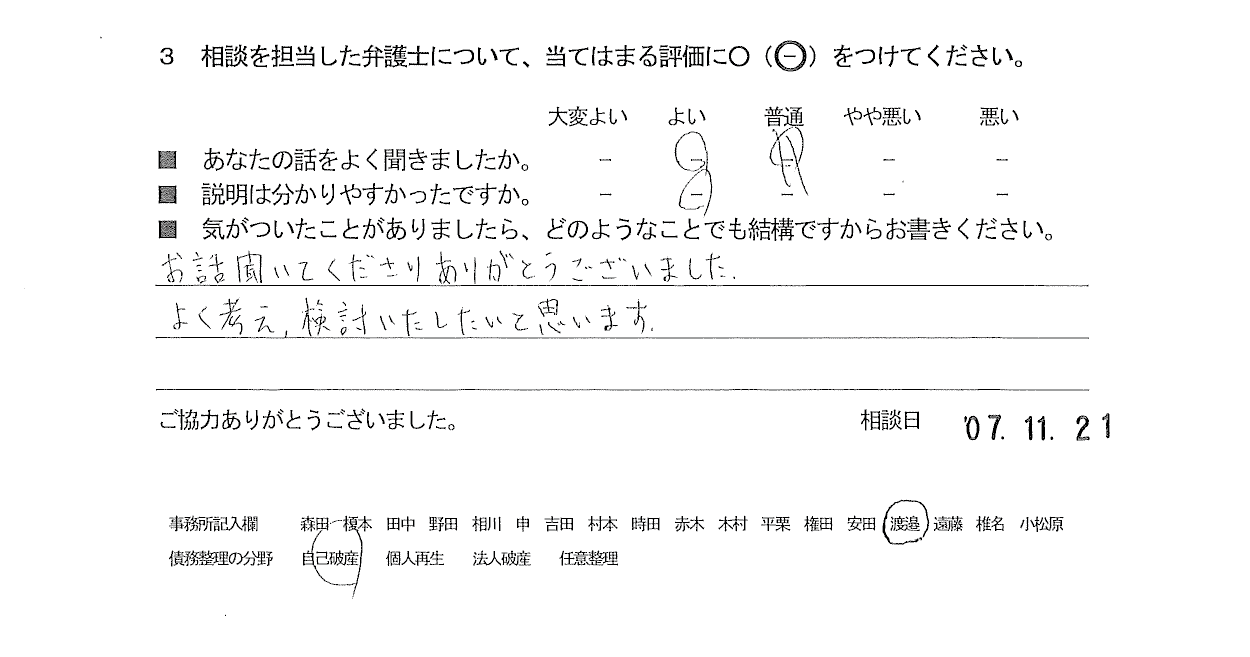 3 相談を担当した弁護士について、当てはまる評価に○（⊖）をつけてください。
大変よい よい 普通 やや悪い 悪い
■ あなたの話をよく聞きましたか。 － － － － －
■ 説明は分かりやすかったですか。 － － － － －
■ 気がついたことがありましたら、どのようなことでも結構ですからお書きください。
お話聞いてくださりありがとうございました.
よく考え,検討いたしたいと思います.
ご協力ありがとうございました。 相談日 '07. 11. 21
事務所記入欄 森田 榎本 田中 野田 相川 申 吉田 村本 時田 赤木 木村 平栗 権田 安田 渡邉 遠藤 椎名 小松原
債務整理の分野 自己破産 個人再生 法人破産 任意整理